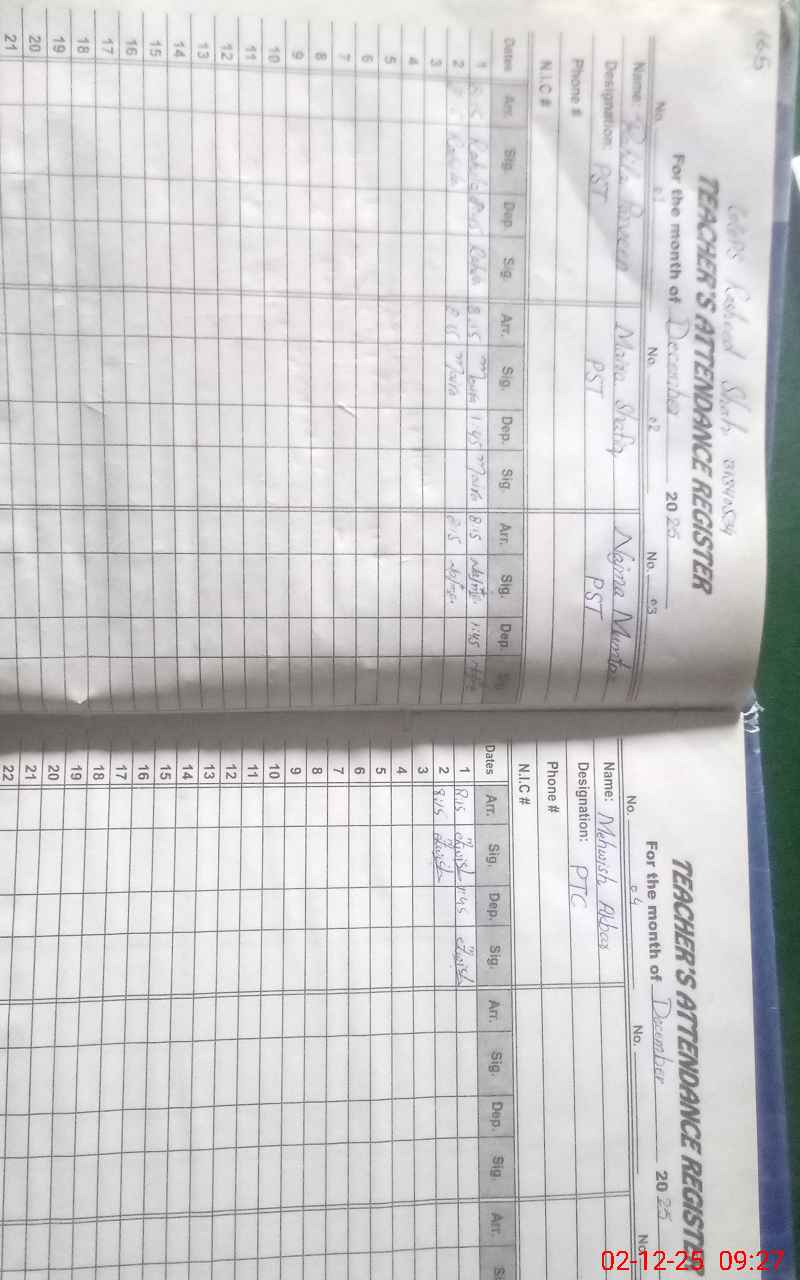 165
GGPS Rasheed Shah
TEACHER'S ATTENDANCE REGISTER
For the month of December 2025
No. 01 No. 02 No. 03
Name: Parveen Maira Shafiq Najma Mumtaz
Designation: PST PST PST
Phone #
N.I.C #
Dates Arr. Sig. Dep. Sig. Arr. Sig. Dep. Sig. Arr. Sig. Dep. Sig.
1 8:15 8:15 Maira 1:45 Maira 8:15 Najma 1:45 Najma
2 8:15 Maira 8:15 Najma
3
4
5
6
7
8
9
10
11
12
13
14
15
16
17
18
19
20
21
TEACHER'S ATTENDANCE REGISTER
For the month of December 2025
No. 04 No. No.
Name: Mehwish Akbar
Designation: PTC
Phone #
N.I.C #
Dates Arr. Sig. Dep. Sig. Arr. Sig. Dep. Sig. Arr.
1 8:15 Mehwish 1:45 Mehwish
2 8:15 Mehwish
3
4
5
6
7
8
9
10
11
12
13
14
15
16
17
18
19
20
21
22
02-12-25 09:27